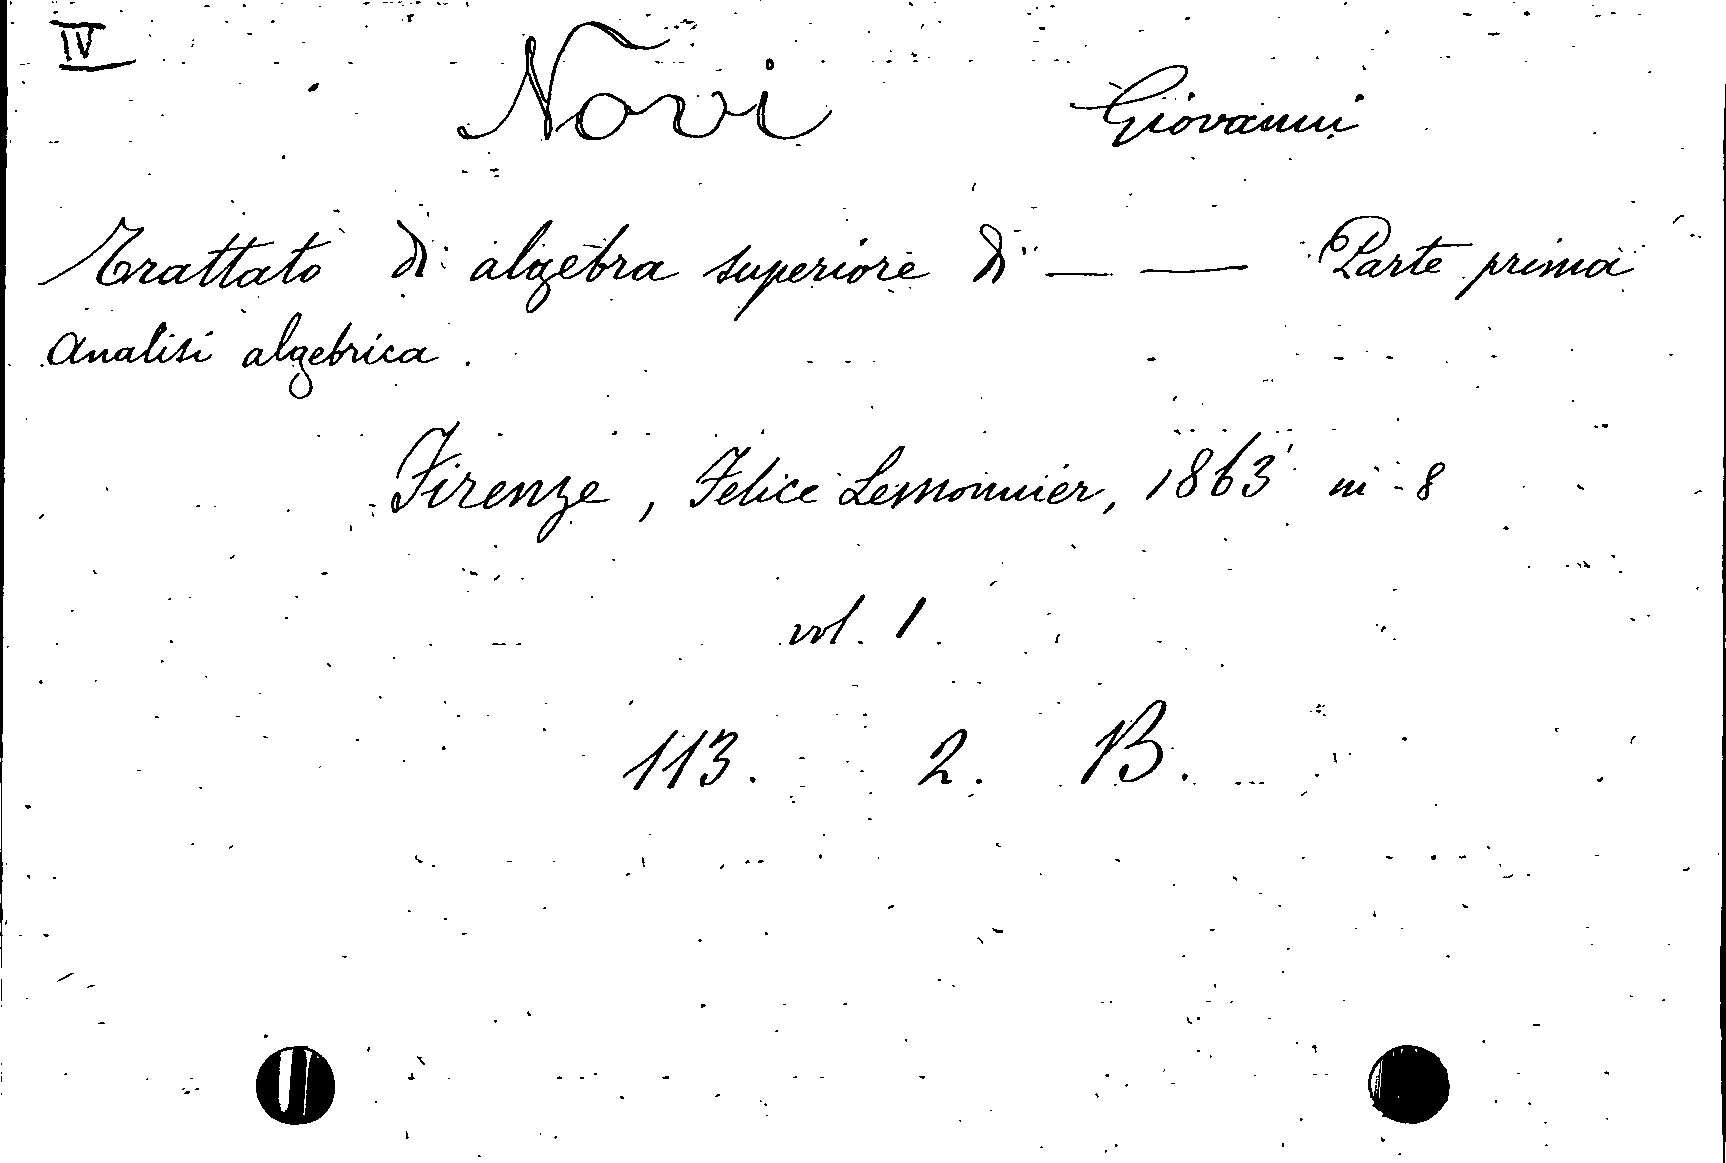 IV
Novi Giovanni
Trattato di algebra superiore di — — Parte prima
Analisi algebrica.
Firenze, Felice Lemonnier, 1863 in-8
vol. 1
113. 2. B.